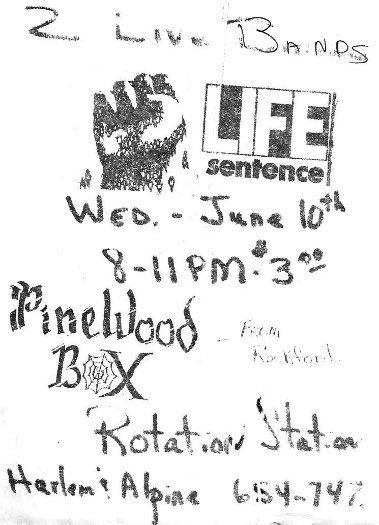 2 Live BANDS
LIFE
sentence
WED. - June 10th
8-11 PM. $3.00
PineWood
BOX
- From
Rockford.
Rotation Station
Harlem & Alpine 654-747